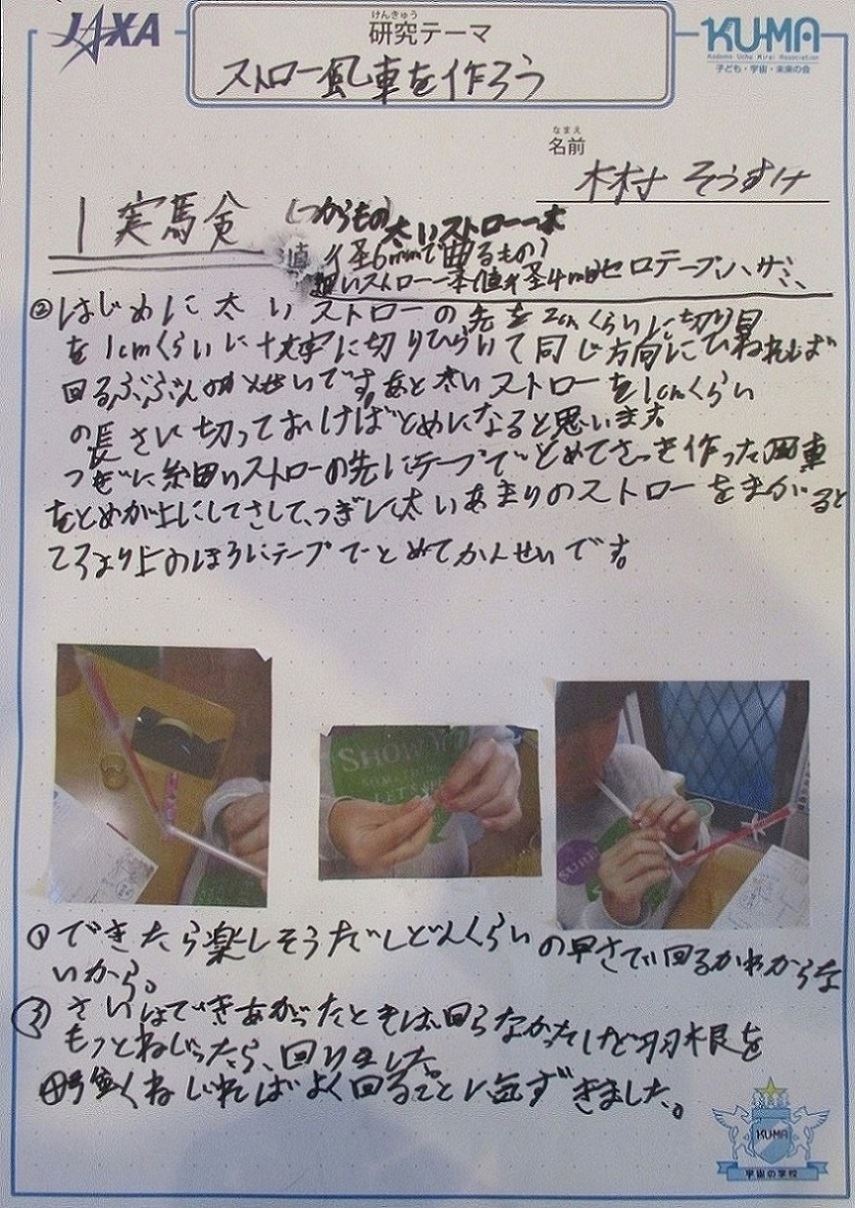 JAXA
けんきゅう
研究テーマ
ストロー風車を作ろう
KU-MA
Kodomo Uchu Mirai Association
子ども・宇宙・未来の会
なまえ
名前
木村 そうすけ
1 実験 (つかうもの) 太いストロー一本
(直径6mmで曲るもの)
細いストロー一本(直径4mm)セロテープ、ハサミ、
②はじめに太いストローの先を2cmくらいに切り
を1cmくらいに十文字に切りひらいて同じ方向にひねれば
回るぶぶんのかんせいです。あと太いストローを1cmくらい
の長さに切っておけばとめになると思います。
つぎに細いストローの先にテープでとめてさっき作った風車
をとめが上にしてさして、つぎに太いあまりのストローをまがると
ころより上のほうにテープでとめてかんせいです。
SHOW
LET'S
SURF
①できたら楽しそうだしどんくらいの早さで回るかわからな
いから。
③さいしょはできあがったときは回らなかったけど羽根を
もっとねじったら、回りました。
④強くねじればよく回ることに気ずきました。
KU-MA
宇宙の学校